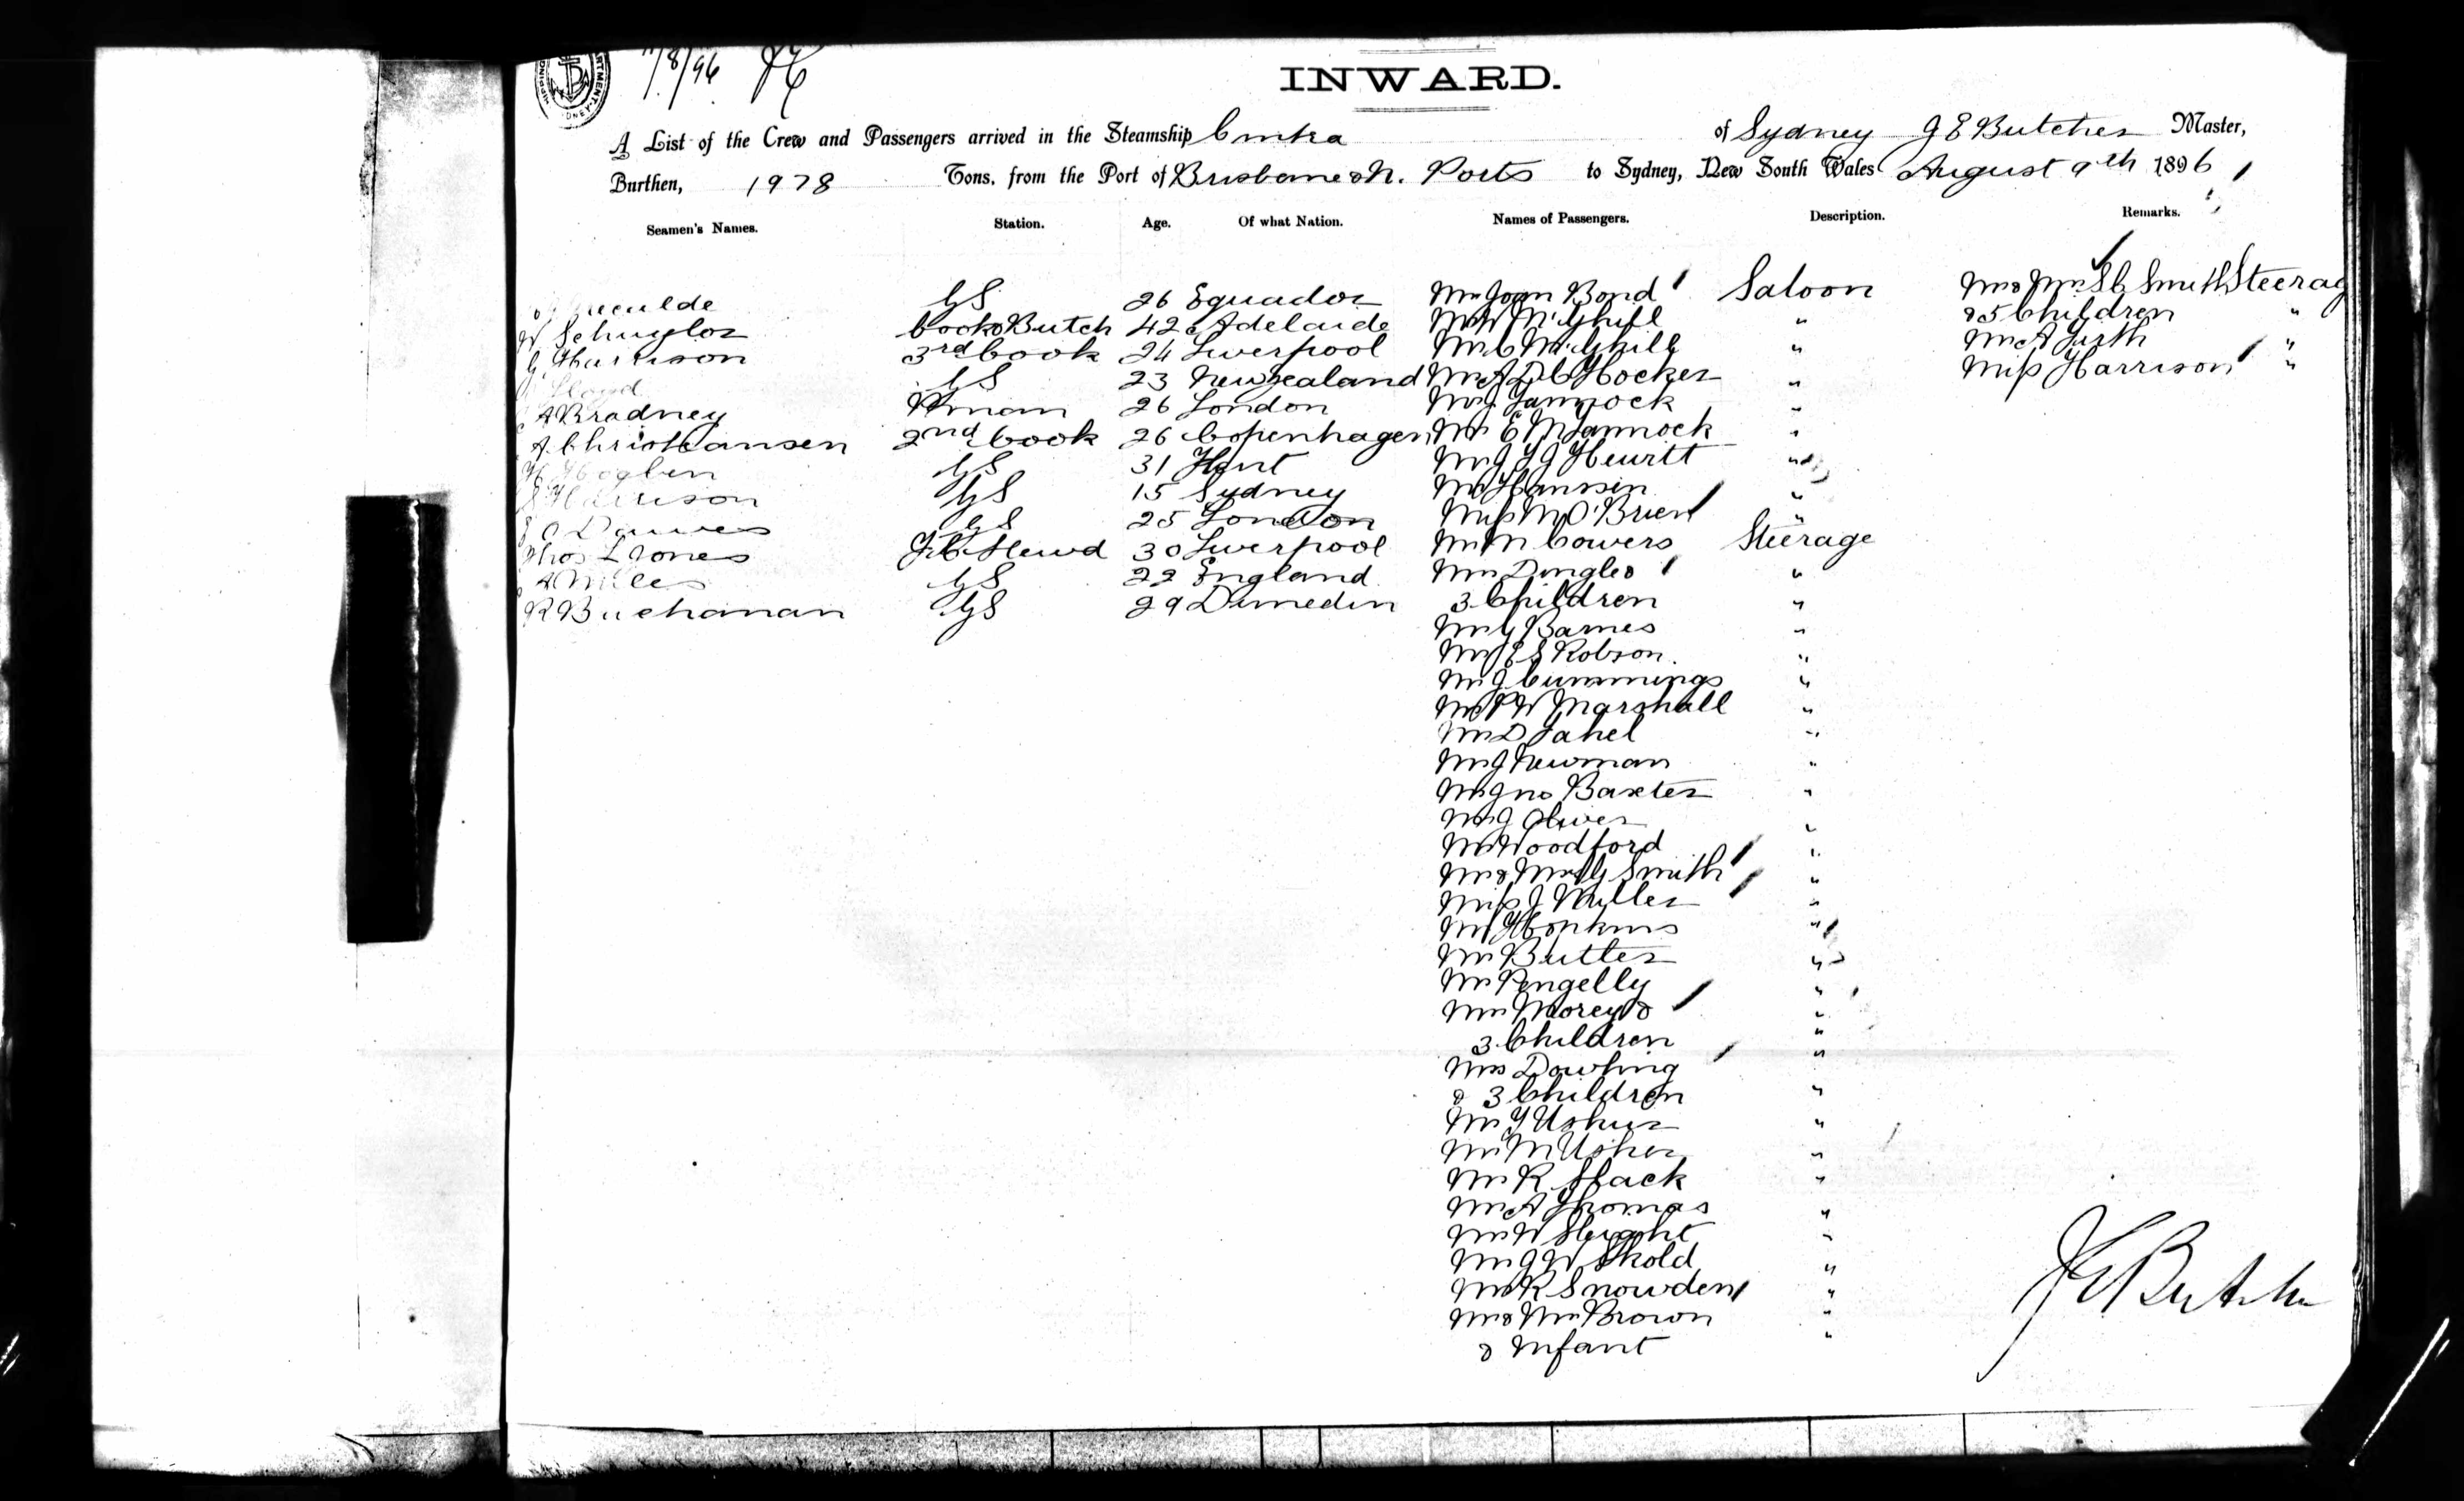 11/8/96
INWARD.
A List of the Crew and Passengers arrived in the Steamship Cintra of Sydney J E Butcher Master,
Burthen, 1978 Tons, from the Port of Brisbane & N. Ports to Sydney, New South Wales August 9th 1896
Seamen's Names. Station. Age. Of what Nation. Names of Passengers. Description. Remarks.
GS 26 Equador Mrs Joan Bond Saloon Mr & Mrs St C Smith Steerag
W Schuylor Cook & Butch 42 Adelaide " & 5 Children "
G Harrison 3rd Cook 24 Liverpool " Mr A Firth "
Lloyd GS 23 New Zealand Mr A D C Hocker " Miss Harrison "
A Bradney Pman 26 London Mr J Jannock "
A Christiansen 2nd Cook 26 Copenhagen Mr E M Jannock "
H Hogben GS 31 Kent Mr J T J Hewitt "
S Harrison GS 15 Sydney Mr Hanssen "
E O Dawes GS 25 London Miss M O'Brien "
Thos L Jones F.C. Stewd 30 Liverpool Mr M Cowers Steerage
A Miles GS 22 England Mrs Dingle & "
R Buchanan GS 29 Dunedin 3 Children "
Mr G Barnes "
Mr E S Robson "
Mr J Cummings "
Mr P W Marshall "
Mr D Jahel "
Mr J Newman "
Mr Jno Baxter "
Mr J Oliver "
Mr Woodford "
Mr & Mrs G Smith "
Miss J Miller "
Mr Hopkins "
Mr Butler "
Mr Pengelly "
Mrs Morey & "
3 Children "
Mrs Dowling "
& 3 Children "
Mr T Usher "
Mr M Usher "
Mr R Slack "
Mr A Thomas "
Mr W Sleight "
Mr J W Skold "
Mr R Snowden "
Mr & Mrs Brown "
& Infant "
J E Butcher